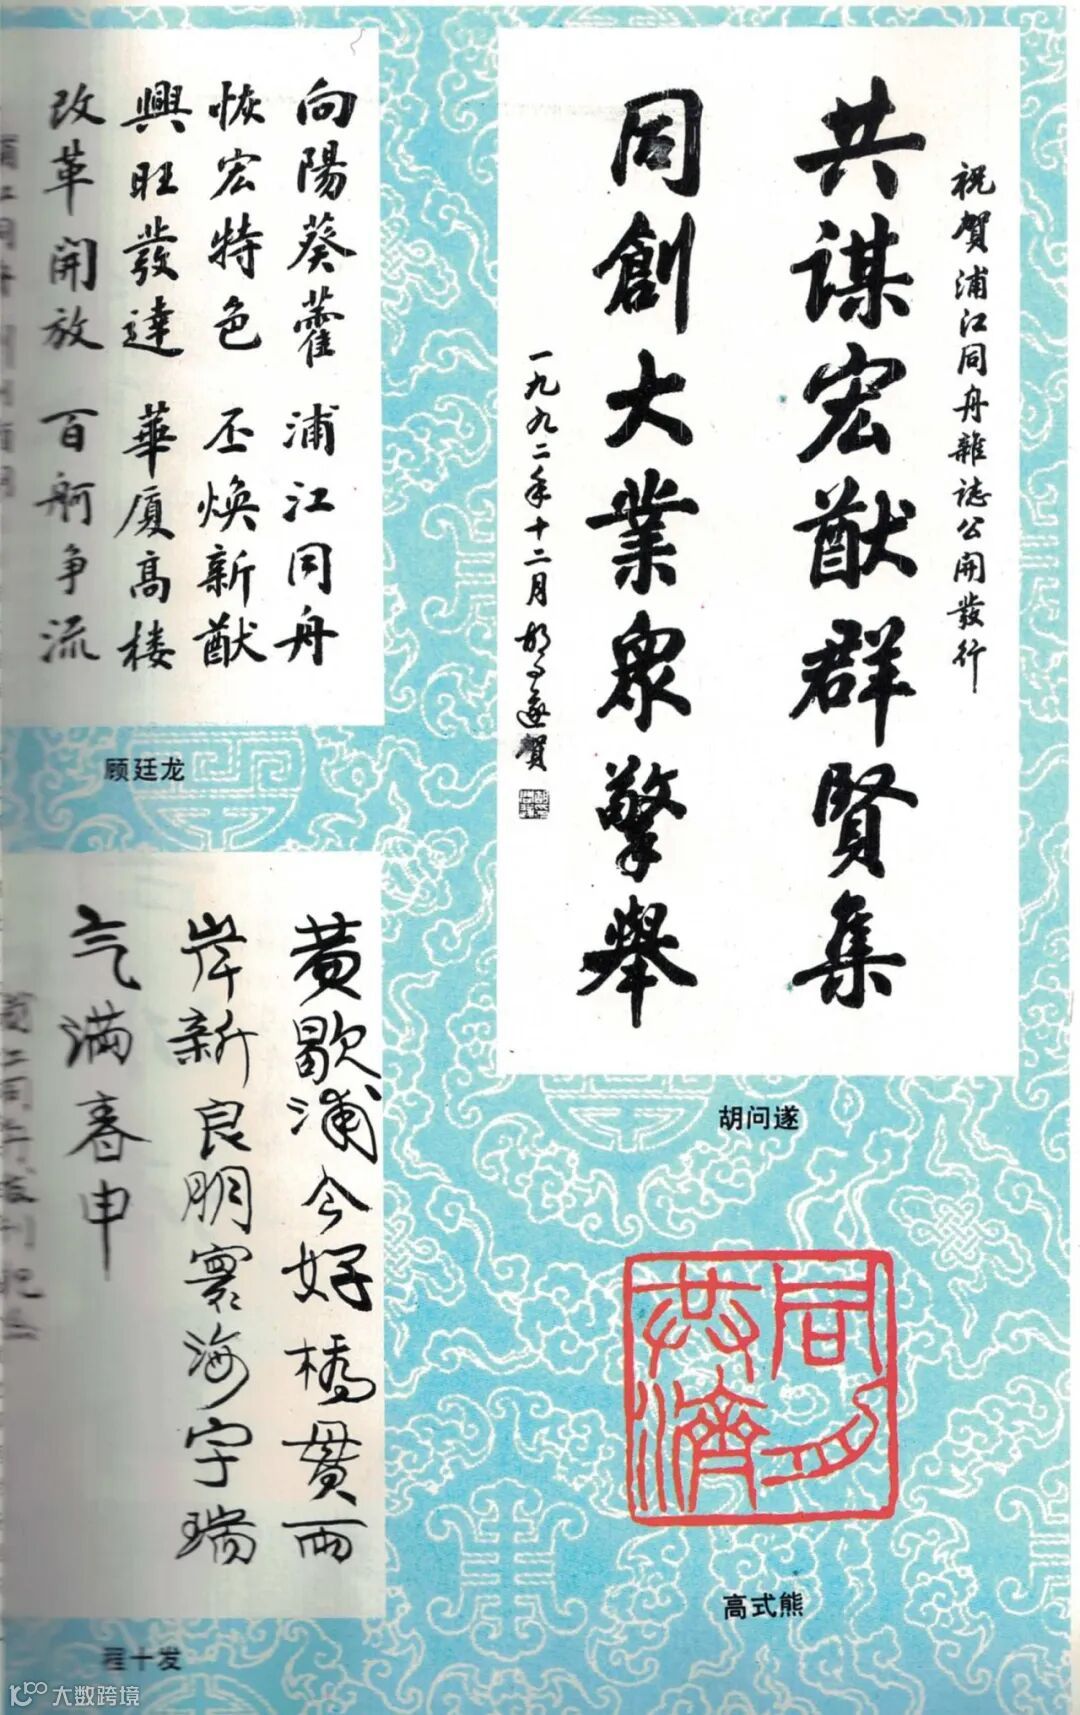 祝賀浦江同舟雜誌公開發行
共謀宏猷群賢集
同創大業眾擎舉
一九九二年十二月胡问遂賀
胡问遂
向陽葵藿 浦江同舟
恢宏特色 丕焕新猷
興旺發達 華厦高楼
改革開放 百舸争流
顾廷龙
黄歇浦今好橋貫两
岸新良朋寰海宇瑞
气满春申
程十发
同舟
共濟
高式熊
大数跨境